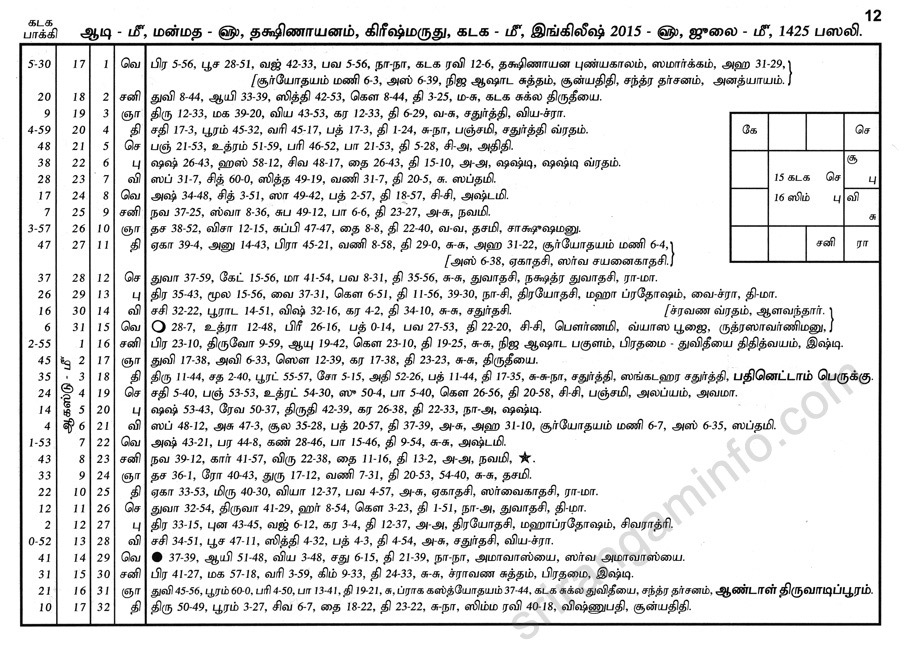 12
கடக பாக்கி
ஆடி - மீ, மன்மத - ௵, தக்ஷிணாயனம், கிரீஷ்மருது, கடக - மீ, இங்கிலீஷ் 2015 - ௵, ஜுலை - மீ, 1425 பஸலி.
5-30 17 1 வெ பிர 5-56, பூச 28-51, வஜ் 42-33, பவ 5-56, நா-நா, கடக ரவி 12-6, தக்ஷிணாயன புண்யகாலம், ஸ்மார்க்கம், அஹ 31-29,
[சூர்யோதயம் மணி 6-3, அஸ் 6-39, நிஜ ஆஷாட சுத்தம், சூன்யதிதி, சந்த்ர தர்சனம், அனத்யாயம்.]
20 18 2 சனி துவி 8-44, ஆயி 33-39, ஸித்தி 42-53, கௌ 8-44, தி 3-25, ம-சு, கடக சுக்ல திருதீயை.
9 19 3 ஞா திரு 12-33, மக 39-20, விய 43-53, கர 12-33, தி 6-29, வ-சு, சதுர்த்தி, விய-ச்ரா.
4-59 20 4 தி சதி 17-3, பூரம் 45-32, வரி 45-17, பத் 17-3, தி 1-24, சு-நா, பஞ்சமி, சதுர்த்தி வ்ரதம்.
48 21 5 செ பஞ் 21-53, உத்ரம் 51-59, பரி 46-52, பா 21-53, தி 5-28, சி-அ, அதிதி.
38 22 6 பு ஷஷ் 26-43, ஹஸ் 58-12, சிவ 48-17, தை 26-43, தி 15-10, அ-அ, ஷஷ்டி, ஷஷ்டி வ்ரதம்.
28 23 7 வி ஸப் 31-7, சித் 60-0, ஸித்த 49-19, வணி 31-7, தி 20-5, சு. ஸப்தமி.
17 24 8 வெ அஷ் 34-48, சித் 3-51, ஸா 49-42, பத் 2-57, தி 18-57, சி-சி, அஷ்டமி.
7 25 9 சனி நவ 37-25, ஸ்வா 8-36, சுப 49-12, பா 6-6, தி 23-27, அ-சு, நவமி.
3-57 26 10 ஞா தச 38-52, விசா 12-15, சுப்பி 47-47, தை 8-8, தி 22-40, வ-வ, தசமி, சாக்ஷுஷமனு.
47 27 11 தி ஏகா 39-4, அனு 14-43, பிரா 45-21, வணி 8-58, தி 29-0, சு-சு, அஹ 31-22, சூர்யோதயம் மணி 6-4,
[அஸ் 6-38, ஏகாதசி, ஸர்வ சயனைகாதசி.]
37 28 12 செ துவா 37-59, கேட் 15-56, மா 41-54, பவ 8-31, தி 35-56, சு-சு, துவாதசி, நக்ஷத்ர துவாதசி, ரா-மா.
26 29 13 பு திர 35-43, மூல 15-56, வை 37-31, கௌ 6-51, தி 11-56, 39-30, நா-சி, திரயோதசி, மஹா ப்ரதோஷம், வை-ச்ரா, தி-மா.
16 30 14 வி சசி 32-22, பூராட 14-51, விஷ் 32-16, கர 4-2, தி 34-10, சு-சு, சதுர்தசி. [ச்ரவண வ்ரதம், ஆளவந்தார்.
6 31 15 வெ 28-7, உத்ரா 12-48, பிரீ 26-16, பத் 0-14, பவ 27-53, தி 22-20, சி-சி, பௌர்ணமி, வ்யாஸ பூஜை, ருத்ரஸாவர்ணிமனு,
2-55 1 16 சனி பிர 23-10, திருவோ 9-59, ஆயு 19-42, கௌ 23-10, தி 19-25, சு-சு, நிஜ ஆஷாட பகுளம், பிரதமை - துவிதீயை திதித்வயம், இஷ்டி.
ஆகஸ்டு - மீ
45 2 17 ஞா துவி 17-38, அவி 6-33, ஸௌ 12-39, கர 17-38, தி 23-23, சு-சு, திருதீயை.
35 3 18 தி திரு 11-44, சத 2-40, பூரட் 55-57, சோ 5-15, அதி 52-26, பத் 11-44, தி 17-35, சு-சு-நா, சதுர்த்தி, ஸங்கடஹர சதுர்த்தி, பதினெட்டாம் பெருக்கு.
24 4 19 செ சதி 5-40, பஞ் 53-53, உத்ரட் 54-30, ஸு 50-4, பா 5-40, கௌ 26-56, தி 20-58, சி-சி, பஞ்சமி, அலப்யம், அவமா.
14 5 20 பு ஷஷ் 53-43, ரேவ 50-37, திருதி 42-39, கர 26-38, தி 22-33, நா-அ, ஷஷ்டி.
4 6 21 வி ஸப் 48-12, அசு 47-3, சூல 35-28, பத் 20-57, தி 37-39, அ-சு, அஹ 31-10, சூர்யோதயம் மணி 6-7, அஸ் 6-35, ஸப்தமி.
1-53 7 22 வெ அஷ் 43-21, பர 44-8, கண் 28-46, பா 15-46, தி 9-54, சு-சு, அஷ்டமி.
43 8 23 சனி நவ 39-12, கார் 41-57, விரு 22-38, தை 11-16, தி 13-2, அ-அ, நவமி, ★.
33 9 24 ஞா தச 36-1, ரோ 40-43, துரு 17-12, வணி 7-31, தி 20-53, 54-40, சு-சு, தசமி.
22 10 25 தி ஏகா 33-53, மிரு 40-30, வியா 12-37, பவ 4-57, அ-சு, ஏகாதசி, ஸர்வைகாதசி, ரா-மா.
12 11 26 செ துவா 32-54, திருவா 41-29, ஹர் 8-54, கௌ 3-23, தி 1-51, நா-அ, துவாதசி, தி-மா.
2 12 27 பு திர 33-15, புன 43-45, வஜ் 6-12, கர 3-4, தி 12-37, அ-அ, திரயோதசி, மஹாப்ரதோஷம், சிவராத்ரி.
0-52 13 28 வி சசி 34-51, பூச 47-11, ஸித்தி 4-32, பத் 4-3, தி 4-54, அ-சு, சதுர்தசி, விய-ச்ரா.
41 14 29 வெ ● 37-39, ஆயி 51-48, விய 3-48, சது 6-15, தி 21-39, நா-நா, அமாவாஸ்யை, ஸர்வ அமாவாஸ்யை.
31 15 30 சனி பிர 41-27, மக 57-18, வரி 3-59, கிம் 9-33, தி 24-33, சு-சு, ச்ராவண சுத்தம், பிரதமை, இஷ்டி.
21 16 31 ஞா துவி 45-56, பூரம் 60-0, பரி 4-50, பா 13-41, தி 19-21, சு, ப்ராக கஸ்த்யோதயம் 37-44, கடக சுக்ல துவிதீயை, சந்த்ர தர்சனம், ஆண்டாள் திருவாடிப்பூரம்.
10 17 32 தி திரு 50-49, பூரம் 3-27, சிவ 6-7, தை 18-22, தி 23-22, சு-நா, ஸிம்ம ரவி 40-18, விஷ்ணுபதி, சூன்யதிதி.
கே செ
சூ பு
15 கடக செ
16 ஸிம் பு
வி சு
சனி ரா
srirangaminfo.com